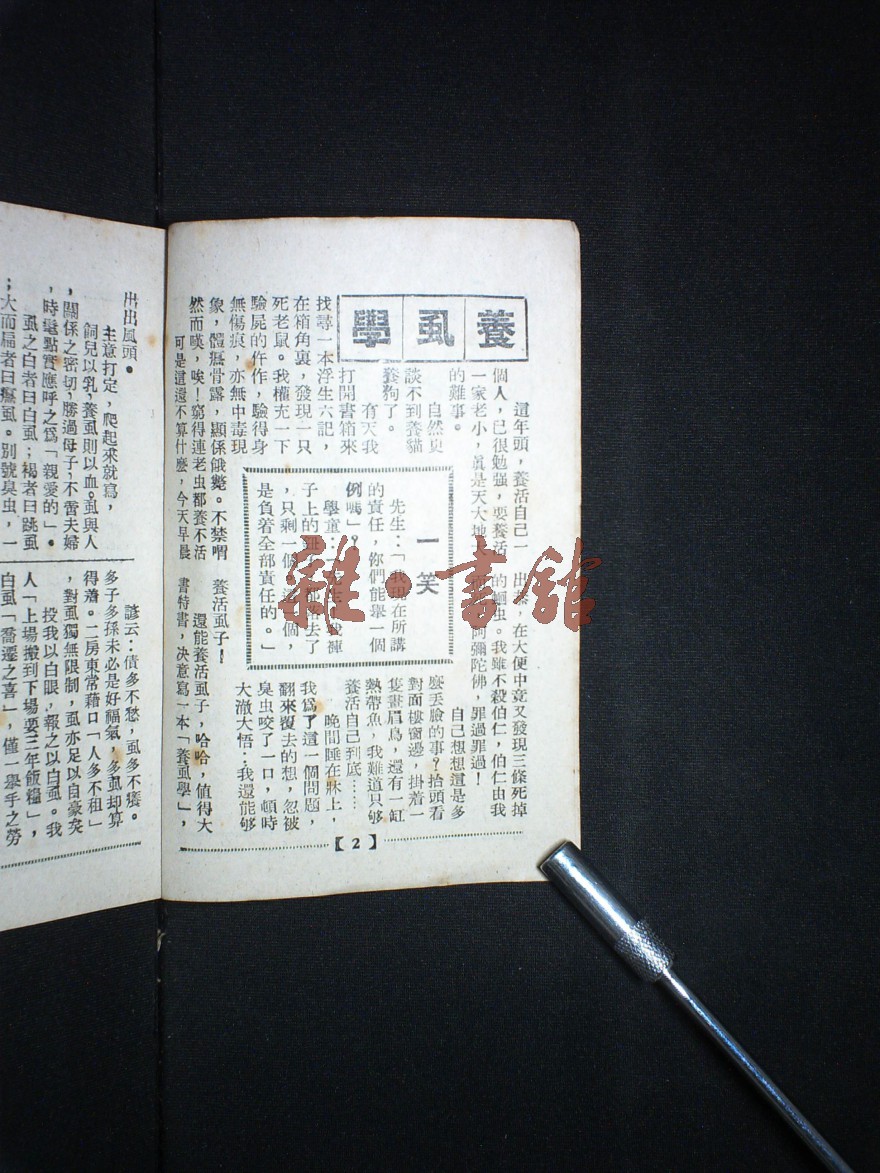 養虱學
這年頭，養活自己一
個人，已很勉强，要養活
一家老小，眞是天大地
的難事。
自然更
談不到養貓
養狗了。
有天我
打開書箱來
找尋一本浮生六記，
在箱角裏，發現一只
死老鼠。我權充一下
驗屍的仵作，驗得身
無傷痕，亦無中毒現
象，體瘦骨露，顯係餓斃。不禁喟
然而嘆，唉！窮得連老虫都養不活
可是這還不算什麽，今天早晨
出恭，在大便中竟又發現三條死掉
的蛔虫。我雖不殺伯仁，伯仁由我
阿彌陀佛，罪過罪過！
自己想想這是多
麽丟臉的事？抬頭看
對面樓窗邊，掛着一
隻畫眉鳥，還有一缸
熱帶魚，我難道只够
養活自己到底……
晚間睡在牀上，
我爲了這一個問題，
翻來覆去的想，忽被
臭虫咬了一口，頓時
大澈大悟：我還能够
養活虱子！
還能養活虱子，哈哈，值得大
書特書，决意寫一本「養虱學」，
一笑
先生：「我現在所講
的責任，你們能舉一個
例嗎」？
學童：「先生！我褲
子上的鈕子都落去了
，只剩一個，這一個，
是負着全部責任的。」
【2】
出出風頭。
主意打定，爬起來就寫，
飼兒以乳，養虱則以血。虱與人
，關係之密切，勝過母子，不啻夫婦
，時髦點實應呼之爲「親愛的」。
虱之白者曰白虱；褐者曰跳虱
；大而扁者曰癟虱。別號臭虫，一
諺云：債多不愁，虱多不癢。
多子多孫未必是好福氣，多虱却算
得着。二房東常藉口「人多不租」
，對虱獨無限制，虱亦足以自豪矣
投我以白眼，報之以白虱。我
人「上場搬到下場要三年飯糧」，
白虱「喬遷之喜」，僅一舉手之勞
雜·書館